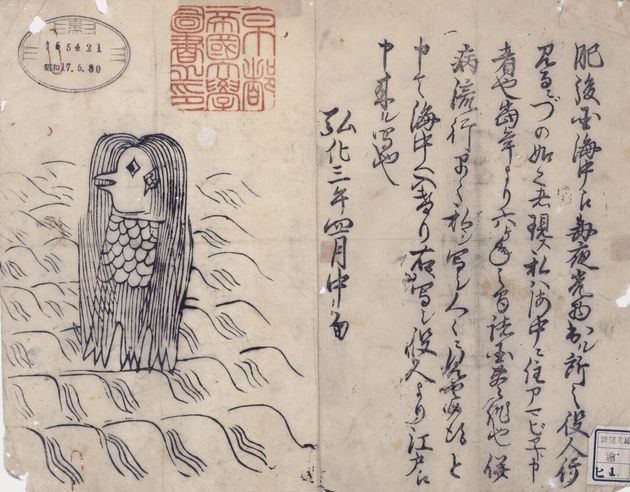 肥後国海中江毎夜光物出ル所之役人行
見るニづの如く者現ス私ハ海中ニ住アマビヱト申
者也当年より六ヶ年之間諸国豊作也併
病流行早々私ヲ写シ人々ニ見せ候得と
申て海中へ入けり右写シ役人より江戸江
申来ル写也
弘化三年四月中旬
京都
帝國大學
圖書之印
165421
昭和17.5.30
新聞文庫
繪
ヒ